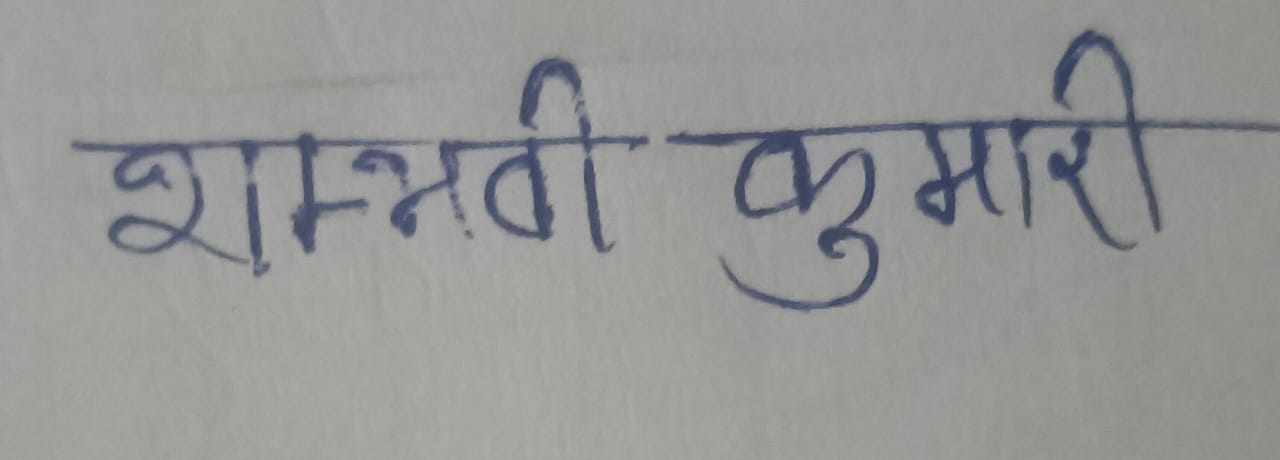 शाम्भवी कुमारी